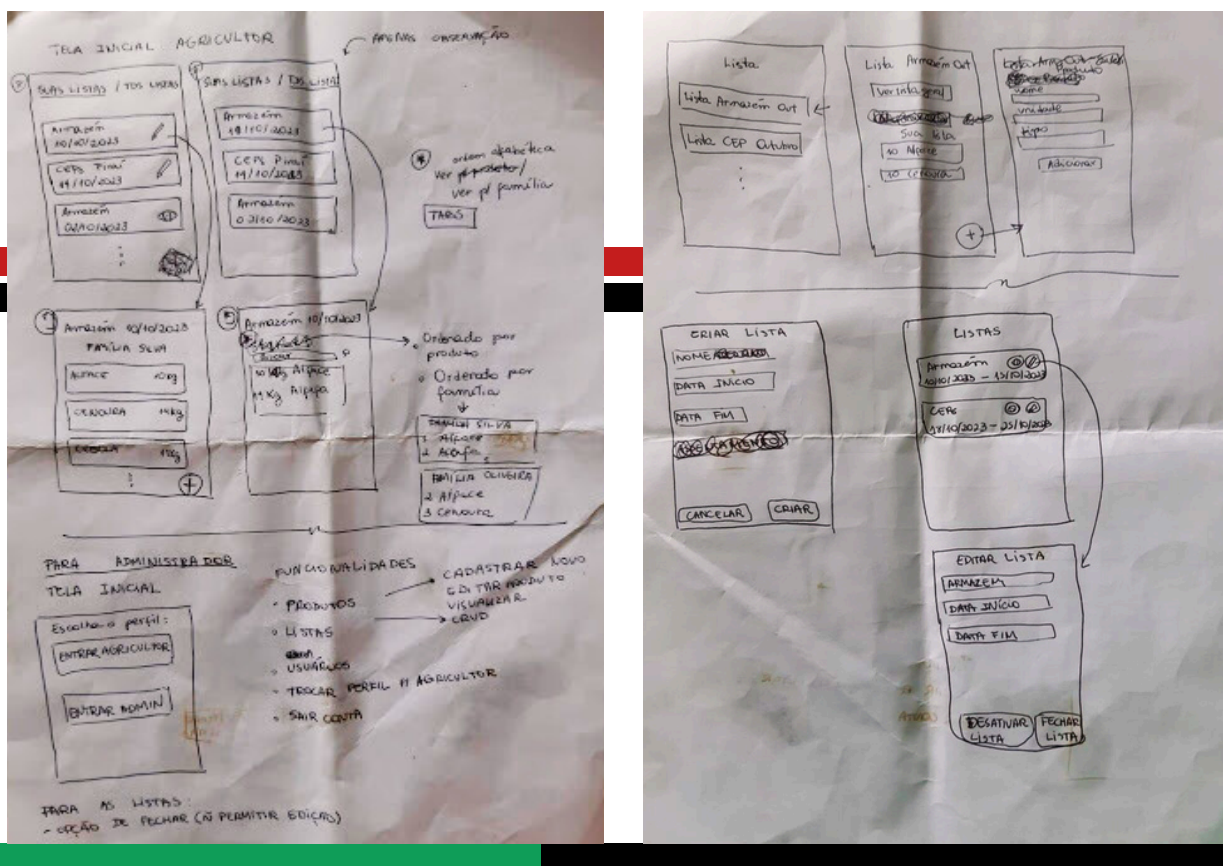 TELA INICIAL AGRICULTOR
APENAS OBSERVAÇÃO
SUAS LISTAS / TDS LISTAS
Armazém
10/10/2023
CEPs Piraí
19/10/2023
Armazém
02/10/2023
SUAS LISTAS / TDS LISTAS
Armazém
10/10/2023
CEPs Piraí
19/10/2023
Armazém
02/10/2023
ordem alfabética
ver p/ produto/
ver p/ família
TABS
Armazém 10/10/2023
FAMÍLIA SILVA
ALFACE 10kg
CENOURA 14kg
CEBOLA 12kg
+
Armazém 10/10/2023
10 kg Alface
14 kg Alfafa
Ordenado por
produto
Ordenado por
família
FAMÍLIA SILVA
1 Alface
2 Alfafa
FAMÍLIA OLIVEIRA
2 Alface
3 Cenoura
PARA ADMINISTRADOR
TELA INICIAL
Escolha o perfil:
ENTRAR AGRICULTOR
ENTRAR ADMIN
FUNCIONALIDADES
- PRODUTOS
LISTAS
USUÁRIOS
- TROCAR PERFIL P/ AGRICULTOR
SAIR CONTA
CADASTRAR NOVO
EDITAR PRODUTO
VISUALIZAR
CRUD
PARA AS LISTAS:
- OPÇÃO DE FECHAR (Ñ PERMITIR EDIÇÃO)
Lista
Lista Armazém Out
Lista CEP Outubro
Lista Armazém Out
Ver lista geral
Sua lista
10 Alface
10 Cenoura
+
Produto
nome
unidade
tipo
Adicionar
CRIAR LISTA
NOME
DATA INÍCIO
DATA FIM
CANCELAR
CRIAR
LISTAS
Armazém
10/10/2023 - 15/10/2023
CEPs
18/10/2023 - 25/10/2023
EDITAR LISTA
ARMAZEM
DATA INÍCIO
DATA FIM
DESATIVAR
LISTA
FECHAR
LISTA